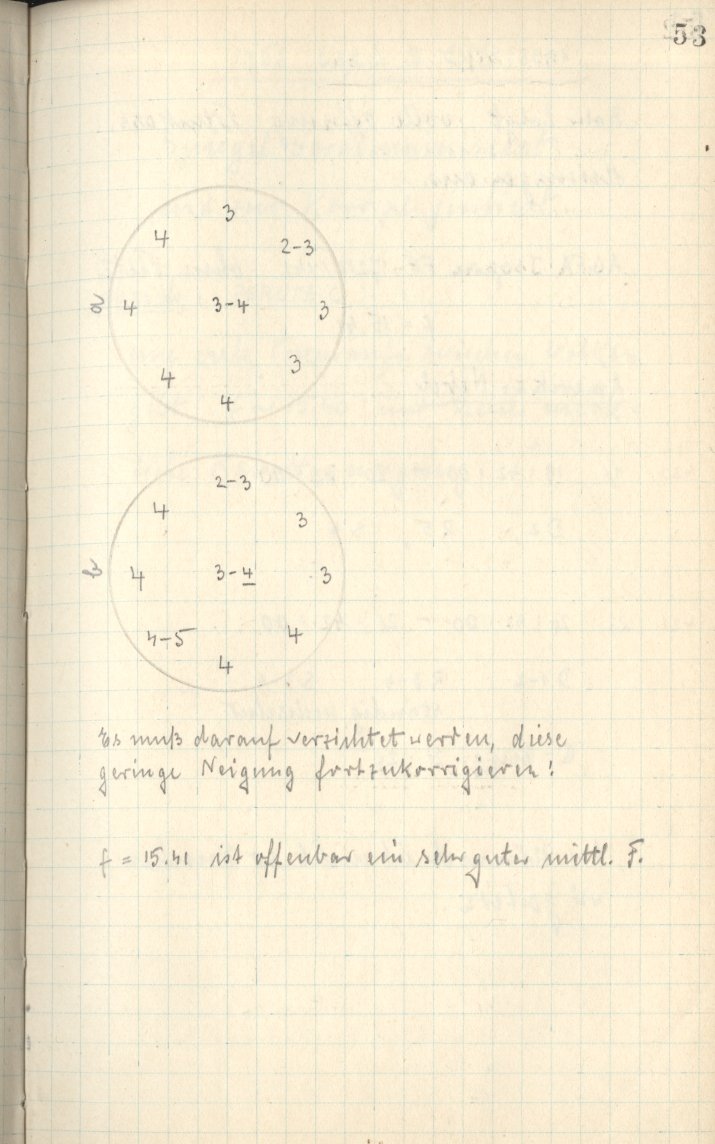 53
3
4
2-3
4
3-4
3
3
4
4
2-3
4
3
4
3-4
3
4-5
4
4
Es muß darauf verzichtet werden, diese
geringe Neigung fortzukorrigieren!
f = 15.41 ist offenbar ein sehr guter mittl. F.